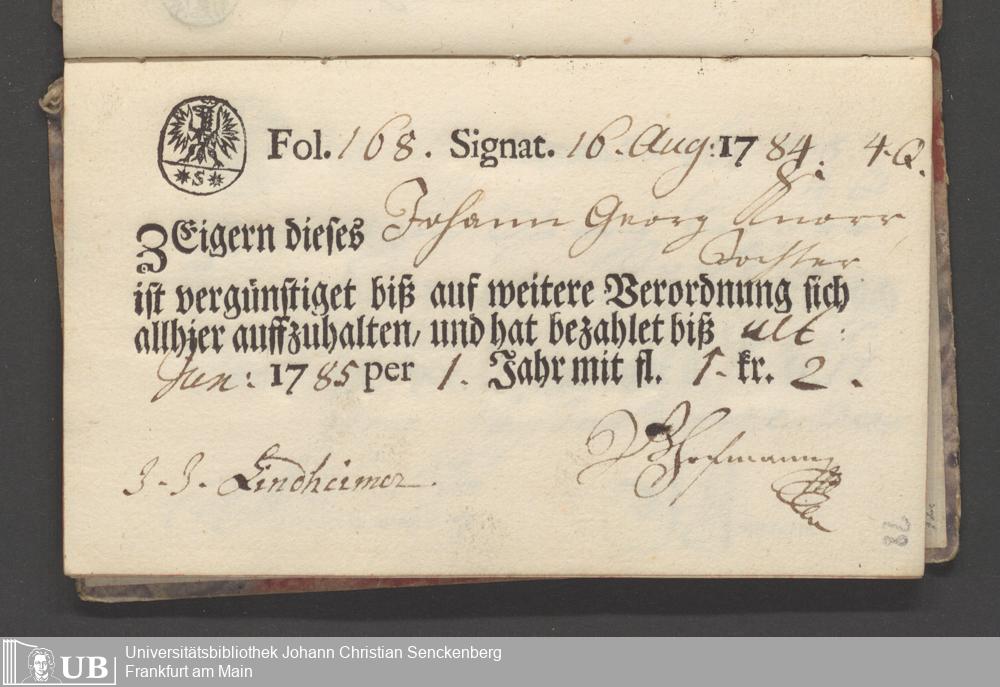 * S *
Fol. 168. Signat. 16. Aug: 1784. 4. Q.
ZEigern dieses Johann Georg Knorr
Tochter
ist vergünstiget biß auf weitere Verordnung sich
allhier auffzuhalten, und hat bezahlet biß ult:
Jun: 1785 per 1. Jahr mit fl. 1. kr. 2.
J. J. Lindheimer.
Hofmann
28
UB
Universitätsbibliothek Johann Christian Senckenberg
Frankfurt am Main